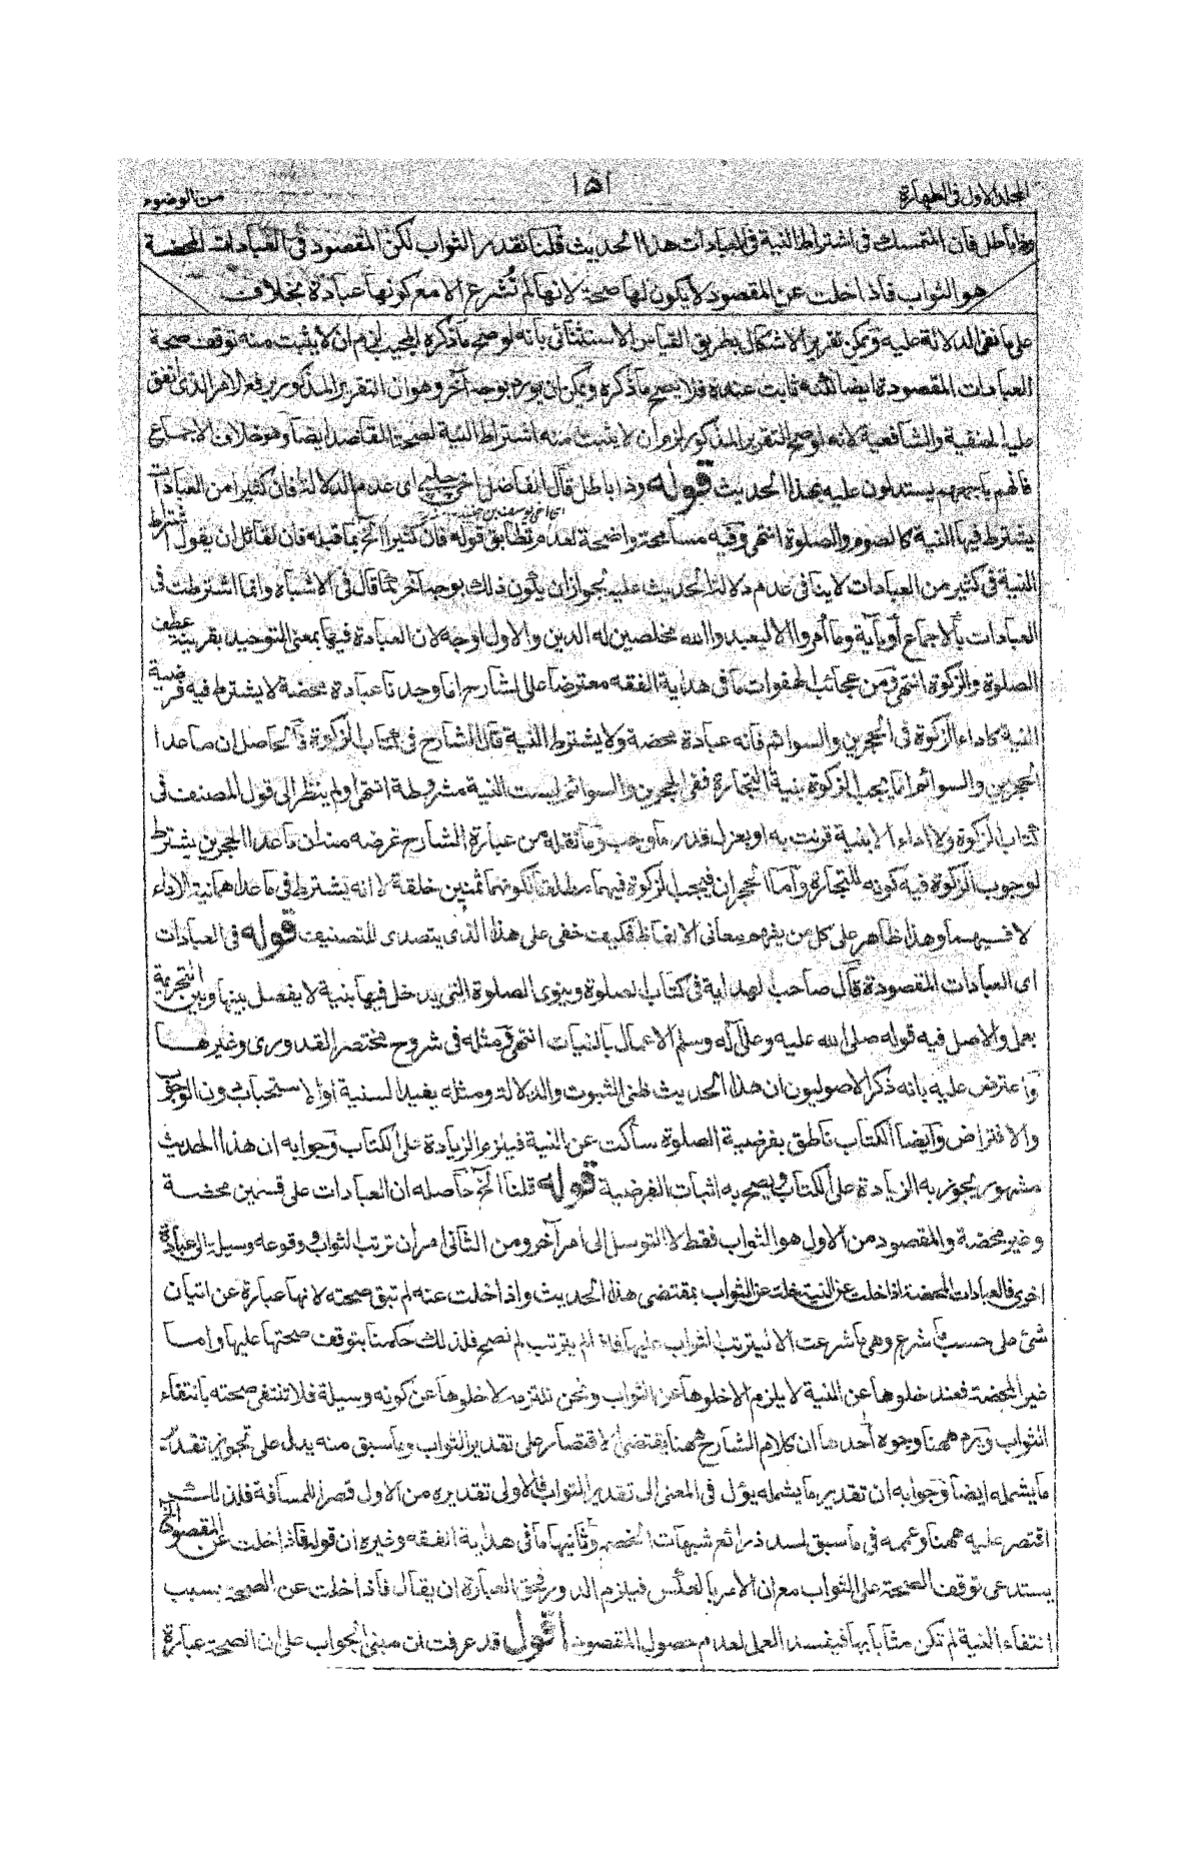 المجلد الاول فى الطهارة
١٥١
من الوضوء
وذا باطل فان المتمسك فى اشتراط النية فى العبادات هذا الحديث قلنا نقدر الثواب لكن المقصود فى العبادات المحضة
هو الثواب فاذا خلت عن المقصود لا يكون لها صحة لانها لم تُشرع الا مع كونها عبادة بخلاف
على ما هى الدلالة عليه ويمكن تقرير الاشكال بطريق القياس الاستثنائى بانه لو صح ما ذكره المجيب لزم ان لا يثبت منه توقف صحة
العبادات المقصودة ايضا لكنه ثابت عنده فلا يصح ما ذكره ويمكن ان يورد بوجه آخر وهو ان التقرير المذكور يرفع الامر الذى اتفق
عليه الحنفية والشافعية لانه لو صح التقرير المذكور لزم ان لا يثبت منه اشتراط النية لصحة المقاصد ايضا وهو خلاف الاجماع
فانهم باجمعهم يستدلون عليه بهذا الحديث قوله وذا باطل قال الفاضل اخى چلپى اى عدم الدلالة فان كثيرا من العبادات
اى اخى يوسف بن جنيد
يشترط فيها النية كالصوم والصلوة انتهى وفيه مسامحة واضحة لعدم تطابق قوله فان كثيرا الخ بما قبله فان لقائل ان يقول اشتراط
النية فى كثير من العبادات لا ينافى عدم دلالة الحديث عليه بجواز ان يكون ذلك بوجه آخر كما قال فى الاشباه وانما اشترطت فى
العبادات بالاجماع او بآية وما أمروا الا ليعبدوا الله مخلصين له الدين والاول اوجه لان العبادة فيها بمعنى التوحيد بقرينة عطف
الصلوة والزكوة انتهى ومن عجائب الهفوات ما فى هداية الفقه معترضا على الشارح انا وجدنا عبادة محضة لا يشترط فيه فرضية
النية كاداء الزكوة فى الحجرين والسوائم فانه عبادة محضة ولا يشترط النية قال الشارح فى كتاب الزكوة فالحاصل ان ما عدا
الحجرين والسوائم انما يجب الزكوة بنية التجارة ففى الحجرين والسوائم ليست النية مشروطة انتهى ولم ينظر الى قول المصنف فى
كتاب الزكوة ولا اداء الا بنية قرنت به او بعزل قدر ما وجب وما نقله من عبارة الشارح غرضه منه ان ما عدا الحجرين يشترط
لوجوب الزكوة فيه كونه للتجارة واما الحجران فيجب الزكوة فيهما مطلقا لكونهما ثمنين خلقة لا انه يشترط فى ما عداهما نية الاداء
لا فيهما وهذا ظاهر على كل من يفهم معانى الالفاظ فكيف خفى على هذا الذى يتصدى للتصنيف قوله فى العبادات
اى العبادات المقصودة قال صاحب الهداية فى كتاب الصلوة وينوى الصلوة التى يدخل فيها بنية لا يفصل بينها وبين التحريمة
بعمل والاصل فيه قوله صلى الله عليه وعلى آله وسلم الاعمال بالنيات انتهى ومثله فى شروح مختصر القدورى وغيرها
واعترض عليه بانه ذكر الاصوليون ان هذا الحديث ظنى الثبوت والدلالة ومثله يفيد السنية او الاستحباب دون الوجوب
والافتراض وايضا الكتاب ناطق بفرضية الصلوة ساكت عن النية فيلزم الزيادة على الكتاب وجوابه ان هذا الحديث
مشهور يجوز به الزيادة على الكتاب ويصح به اثبات الفرضية قوله قلنا الخ حاصله ان العبادات على قسمين محضة
وغير محضة والمقصود من الاول هو الثواب فقط لا التوسل الى امر آخر ومن الثانى امران ترتب الثواب ووقوعه وسيلة الى عبادة
اخرى فالعبادات المحضة اذا خلت عن النية خلت عن الثواب بمقتضى هذا الحديث واذا خلت عنه لم تبق صحته لانها عبارة عن اتيان
شئ على حسب ما شرع وهى ما شرعت الا ليترتب الثواب عليها فاذا لم يترتب لم تصح فلذلك حكمنا بتوقف صحتها عليها واما
غير المحضة فعند خلوها عن النية لا يلزم الا خلوها عن الثواب ونحن نلتزمه لا خلوها عن كونه وسيلة فلا تنتفى صحته بانتفاء
الثواب ويرد ههنا وجوه أحدها ان كلام الشارح ههنا يقتضى الاقتصار على تقدير الثواب وما سبق منه يدل على تجويز تقدير
ما يشمله ايضا وجوابه ان تقدير ما يشمله يؤل فى المعنى الى تقدير الثواب فالاولى تقديره من الاول قصرا للمسافة فلذلك
اقتصر عليه ههنا وعممه فى ما سبق لسد ذرائع شبهات الخصم وثانيها ما فى هداية الفقه وغيره ان قوله فاذا خلت عن المقصود الخ
يستدعى توقف الصحة على الثواب مع ان الامر بالعكس فيلزم الدور فحق العبارة ان يقال فاذا خلت عن الصحة بسبب
انتفاء النية لم تكن مثابا بها فيفسد العمل لعدم حصول المقصود اقول قد عرفت ان مبنى الجواب على ان الصحة عبارة